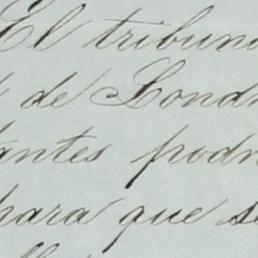 El tribuna
de Londr
antes podr
para que se